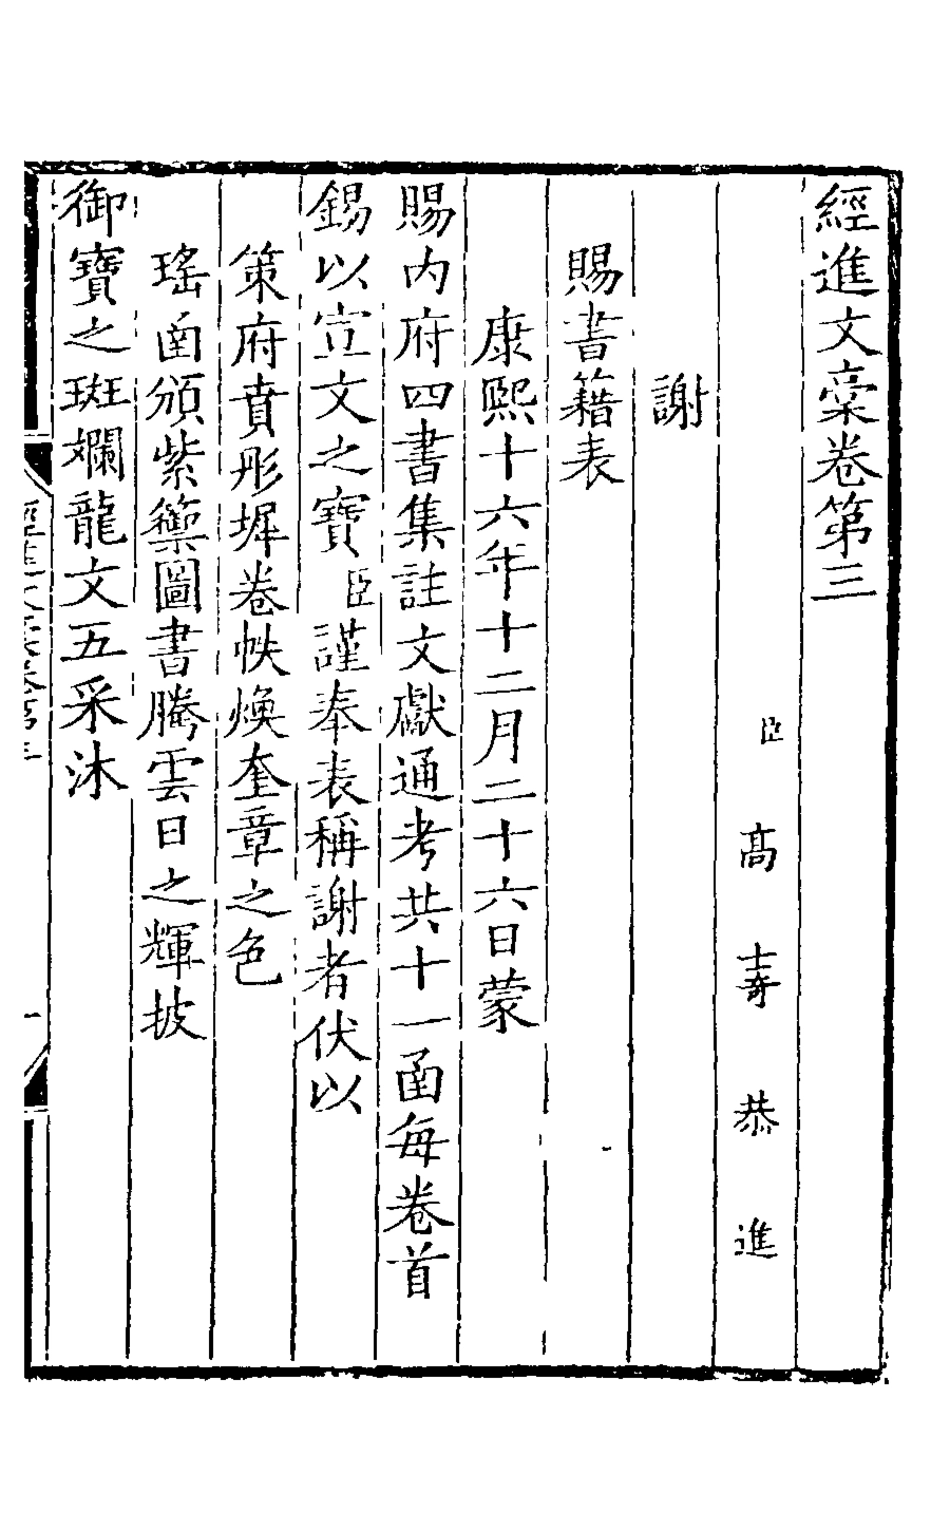 經進文稾卷第三
臣高士奇恭進
謝
賜書籍表
康熙十六年十二月二十六日蒙
賜內府四書集註文獻通考共十一函每卷首
錫以宣文之寶臣謹奉表稱謝者伏以
策府賁彤墀卷帙煥奎章之色
瑤函頒紫籞圖書騰雲日之輝披
御寶之斑斕龍文五采沐